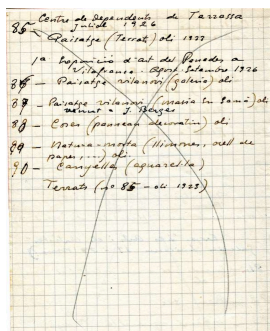 Centre de Dependents de Tarrassa
Juliol 1926
85 — Paisatge (Terrats) oli 1923
1ª Exposicio d'art del Penedes a
Vilafranca - Agost Setembre 1926
86 — Paisatge vilanoví (galeria) oli
87 — Paisatge vilanoví (Masia En Samà) oli
venut a J. Berges
88 — Coses (panneau decoratiu) oli
89 — Natura-morta (llimones, orell de
paper, ...) oli
90 — Campello (aquarella)
Terrats (nº 85 — oli 1923)